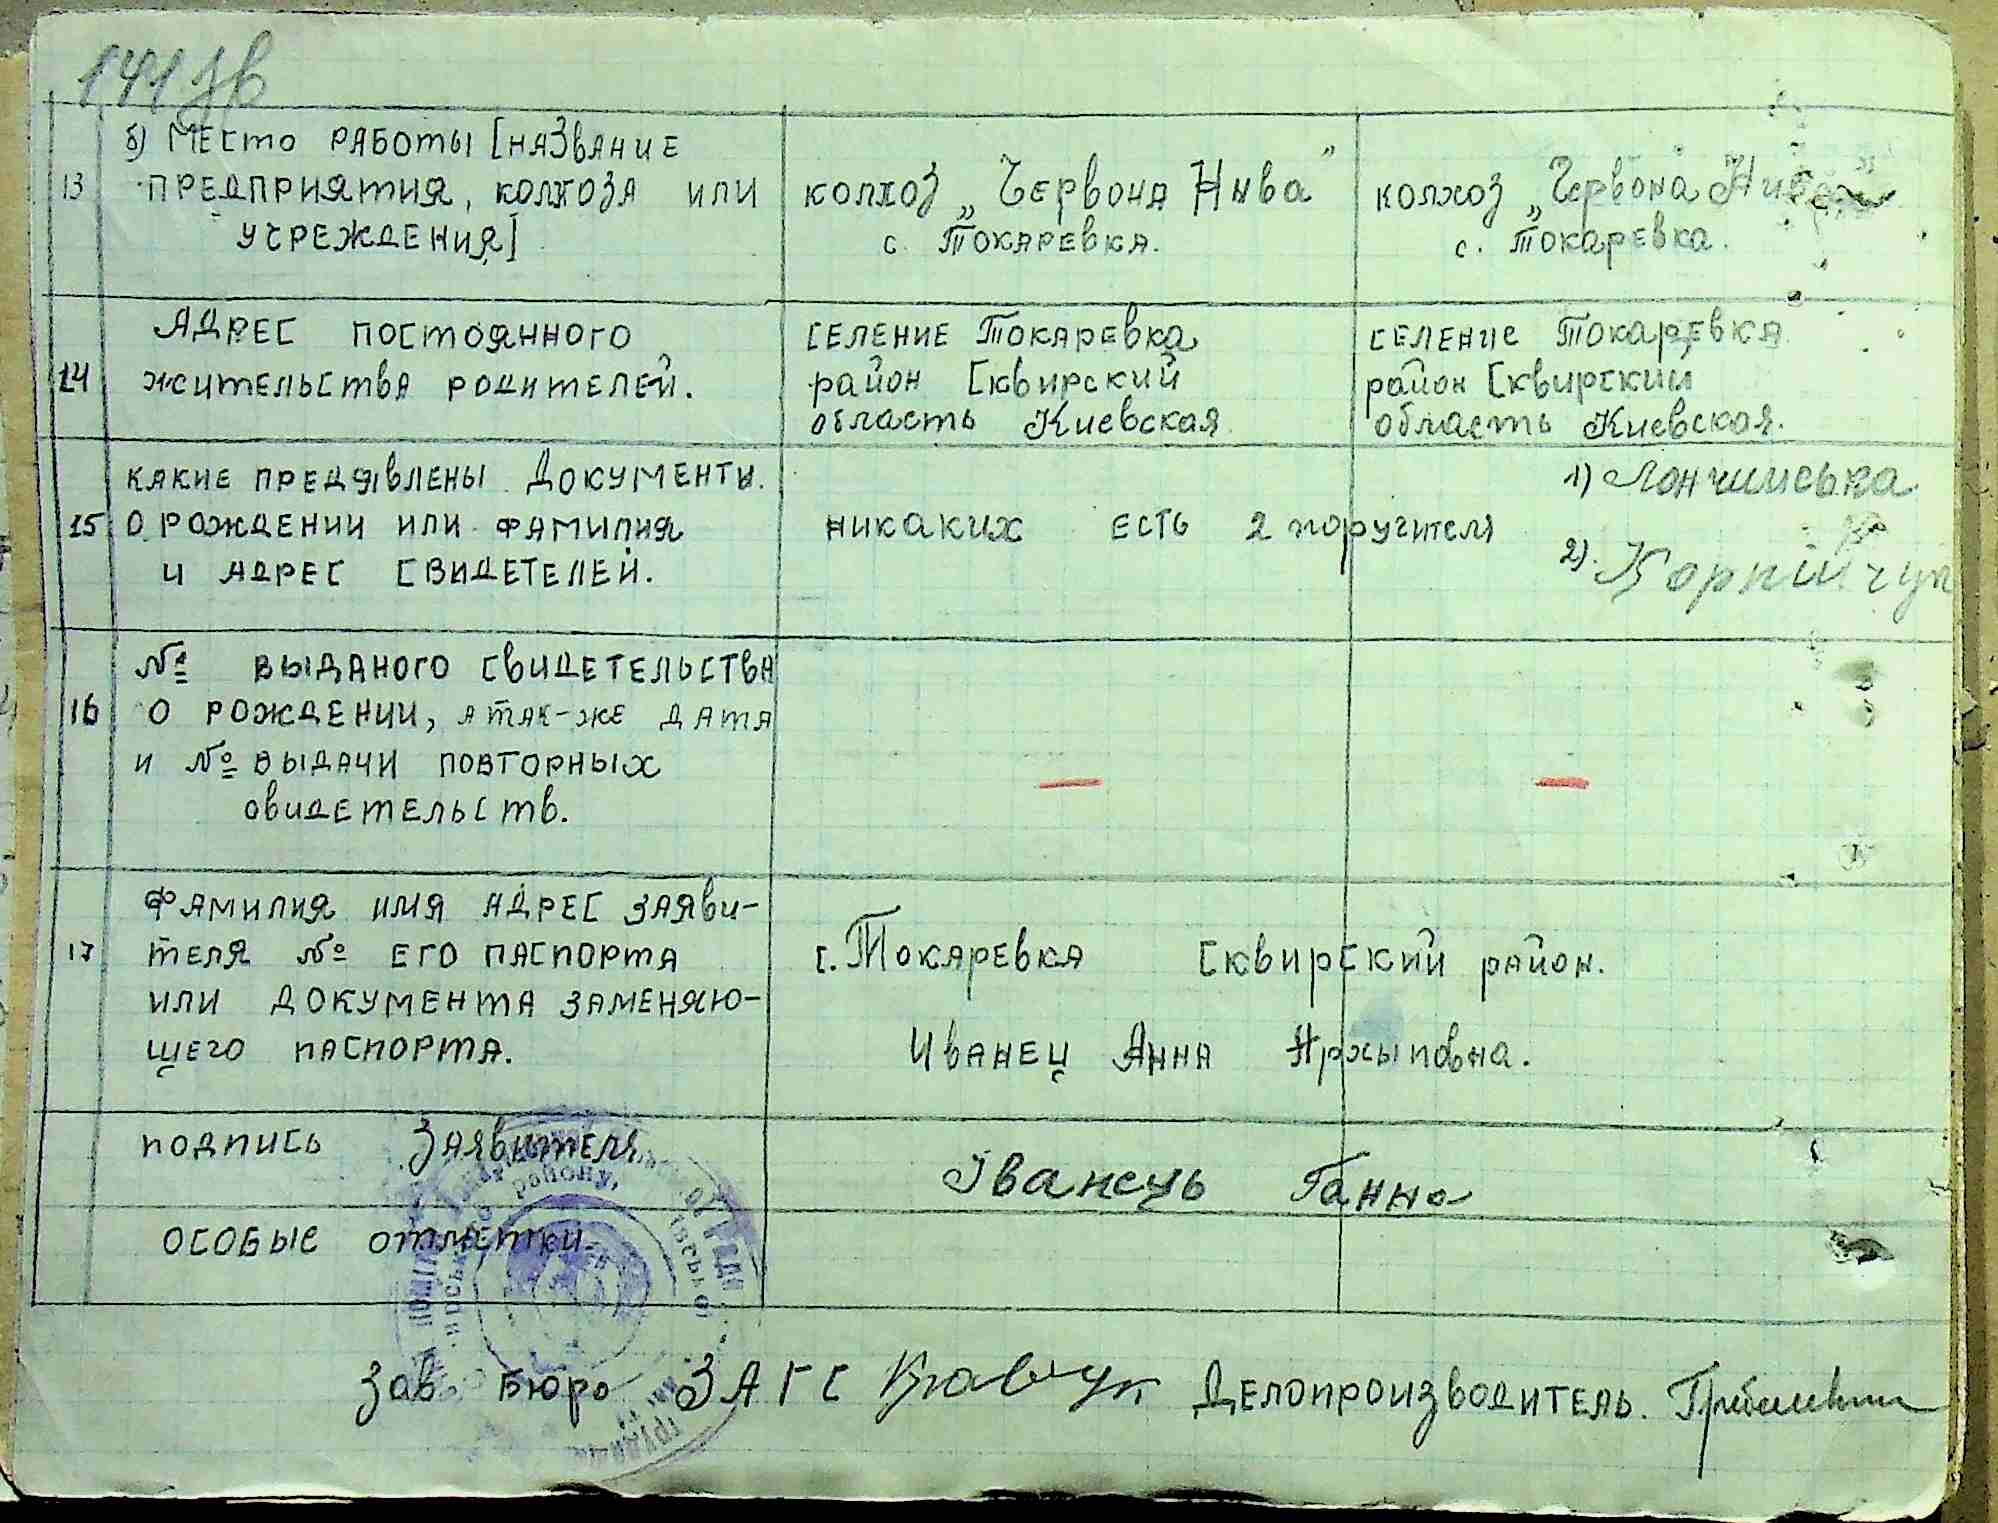 141 зв
б) Место работы [название
13 предприятия, колхоза или колхоз „Червона Ныва" колхоз „Червона Нива"
учреждения] с. Токаревка. с. Токаревка.
Адрес постоянного селение Токаревка селение Токаревка
14 жительства родителей. район Сквирский район Сквирский
область Киевская область Киевская.
какие предявлены документы. 1) Лончинська
15 о рождении или фамилия никаких есть 2 поручителя
и адрес свидетелей. 2). Корнийчук
№ выданого свидетельства
16 о рождении, а так-же дата
и № выдачи повторных — —
свидетельств.
фамилия имя адрес заяви-
17 теля № его паспорта с. Токаревка Сквирский район.
или документа заменяю-
щего паспорта. Иванец Анна Архыповна.
подпись Заявителя Іванець Ганна
району,
особые отметки.
Зав бюро ЗАГС Кравчук Делопроизводитель.